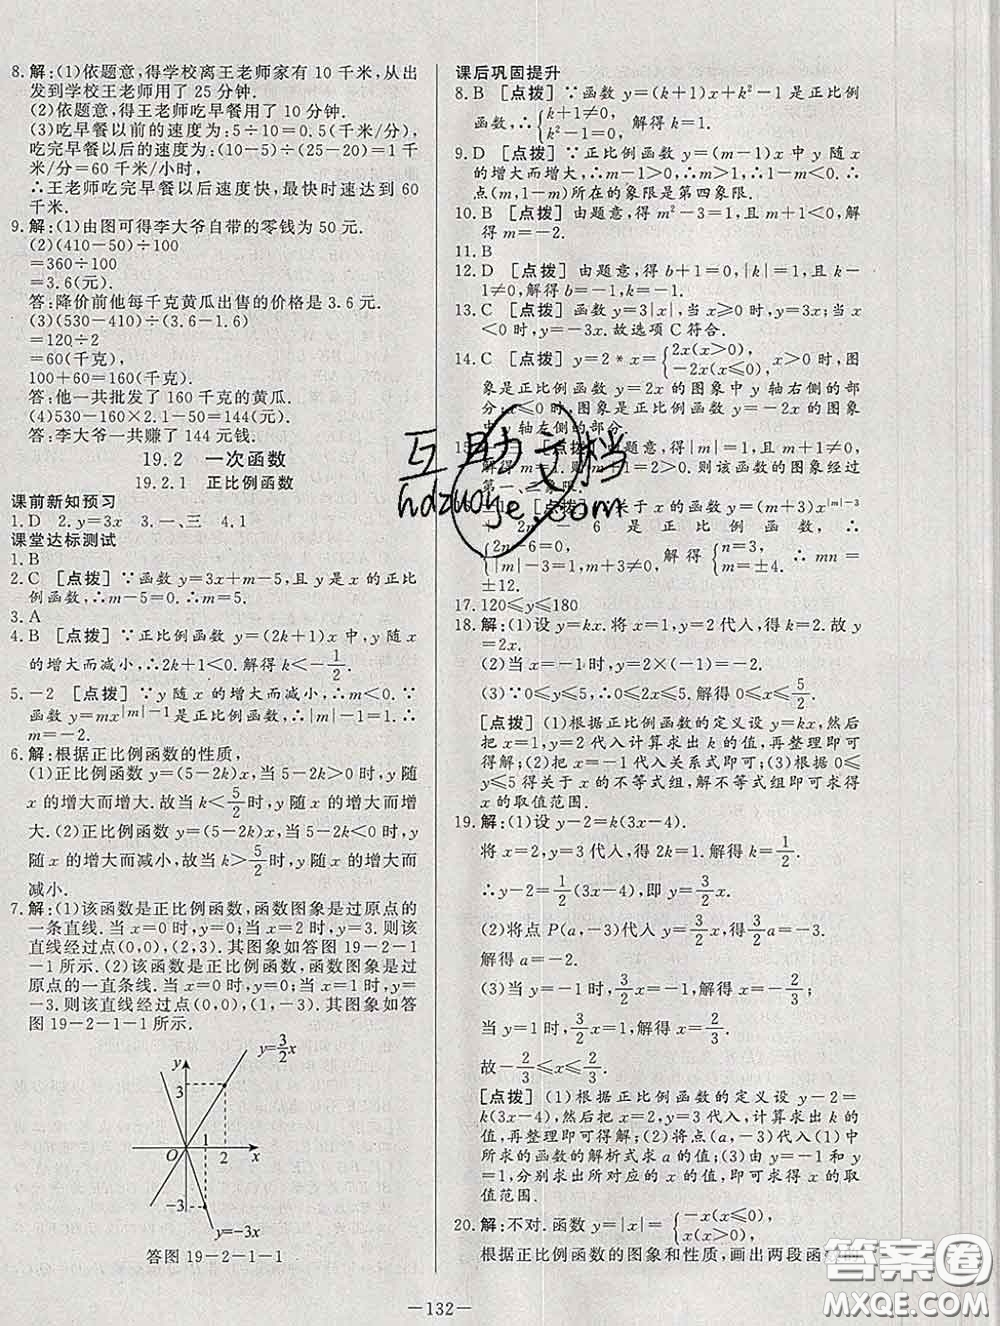 8.解:(1)依题意,得学校离王老师家有10千米,从出
发到学校王老师用了25分钟.
(2)依题意,得王老师吃早餐用了10分钟.
(3)吃早餐以前的速度为:5÷10=0.5(千米/分),
吃完早餐以后的速度为:(10-5)÷(25-20)=1千
米/分=60千米/小时,
∴王老师吃完早餐以后速度快,最快时速达到60
千米.
9.解:(1)由图可得李大爷自带的零钱为50元.
(2)(410-50)÷100
=360÷100
=3.6(元).
答:降价前他每千克黄瓜出售的价格是3.6元.
(3)(530-410)÷2
=120÷2
=60(千克),
100+60=160(千克).
答:他一共批发了160千克的黄瓜.
(4)530-160×2.1-50=144(元).
答:李大爷一共赚了144元钱.
19.2 一次函数
19.2.1 正比例函数
课前新知预习
1.D 2.y=3x 3.一、三 4.1
课堂达标测试
1.B
2.C [点拨]∵函数y=3x+m-5,且y是x的正比
例函数,∴m-5=0.∴m=5.
3.A
4.B [点拨]∵正比例函数y=(2k+1)x中,y随x
的增大而减小,∴2k+1<0.解得k<-1/2.
5.-2 [点拨]∵y随x的增大而减小,∴m<0.∵
函数y=mx^{|m|-1}是正比例函数,∴|m|-1=1.∴
m=-2.
6.解:根据正比例函数的性质,
(1)正比例函数y=(5-2k)x,当5-2k>0时,y随
x的增大而增大.故当k<5/2时,y随x的增大而增
大.(2)正比例函数y=(5-2k)x,当5-2k<0时,y
随x的增大而减小,故当k>5/2时,y随x的增大而
减小.
7.解:(1)该函数是正比例函数,函数图象是过原点的
一条直线.当x=0时,y=0;当x=2时,y=3.则该
直线经过点(0,0),(2,3).其图象如答图19-2-1-
-1所示.(2)该函数是正比例函数,函数图象是过
原点的一直条线.当x=0时,y=0;当x=1时,y=
-3.则该直线经过点(0,0),(1,-3).其图象如答
图19-2-1-1所示.
y y=3/2x
3
1
O 2 x
-3
y=-3x
答图19-2-1-1
课后巩固提升
8.B [点拨]∵函数y=(k+1)x+k²-1是正比例
函数,∴{k+1≠0, k²-1=0. 解得k=1.
9.D [点拨]∵正比例函数y=(m-1)x中y随x
的增大而增大,∴m-1>0,∴m>1,∴1-m<0.∴
点(m,1-m)所在的象限是第四象限.
10.B [点拨]由题意,得m²-3=1,且m+1<0,解
得m=-2.
11.B
12.D [点拨]由题意,得b+1=0,|k|=1,且k-
1≠0.解得b=-1,k=-1.
13.C [点拨]函数y=3|x|,当x≥0时,y=3x;当x
<0时,y=-3x.故选项C符合.
14.C [点拨]y=2*x={2x(x>0), -2x(x≤0), x>0时,图
象是正比例函数y=2x的图象中y轴右侧的部
分;x≤0时,图象是正比例函数y=-2x的图象
中y轴左侧的部分.
15. [点拨]由题意,得|m|=1,且m+1≠0,
解得m=1.∴2m=2>0.则该函数的图象经过
第一、三象限.
[点拨]关于x的函数y=(m+3)x^{|m|-3}
+2n-6是正比例函数,∴
{2n-6=0, |m|-3=1. 解得{n=3, m=±4. ∴mn=
±12.
17.120≤y≤180
18.解:(1)设y=kx.将x=1,y=2代入,得k=2.故y
=2x.
(2)当x=-1时,y=2×(-1)=-2.
(3)∵0≤y≤5,∴0≤2x≤5.解得0≤x≤5/2.
[点拨](1)根据正比例函数的定义设y=kx,然后
把x=1,y=2代入计算求出k的值,再整理即可
得解;(2)把x=-1代入关系式即可;(3)根据0≤
y≤5得关于x的不等式组,解不等式组即可求得
x的取值范围.
19.解:(1)设y-2=k(3x-4).
将x=2,y=3代入,得2k=1.解得k=1/2.
∴y-2=1/2(3x-4),即y=3/2x.
(2)将点P(a,-3)代入y=3/2x,得3/2a=-3.
解得a=-2.
(3)当y=-1时,3/2x=-1,解得x=-2/3.
当y=1时,3/2x=1,解得x=2/3.
故-2/3≤x≤2/3.
[点拨](1)根据正比例函数的定义设y-2=
k(3x-4),然后把x=2,y=3代入,计算求出k的
值,再整理即可得解;(2)将点(a,-3)代入(1)中
所求的函数的解析式求a的值;(3)由y=-1和y
=1,分别求出所对应的x的值,即可求得x的取
值范围.
20.解:不对.函数y=|x|={-x(x≤0), x(x>0),
根据正比例函数的图象和性质,画出两段函
互助文档
hdzuoye.com
答案圈
MXQE.COM
—132—